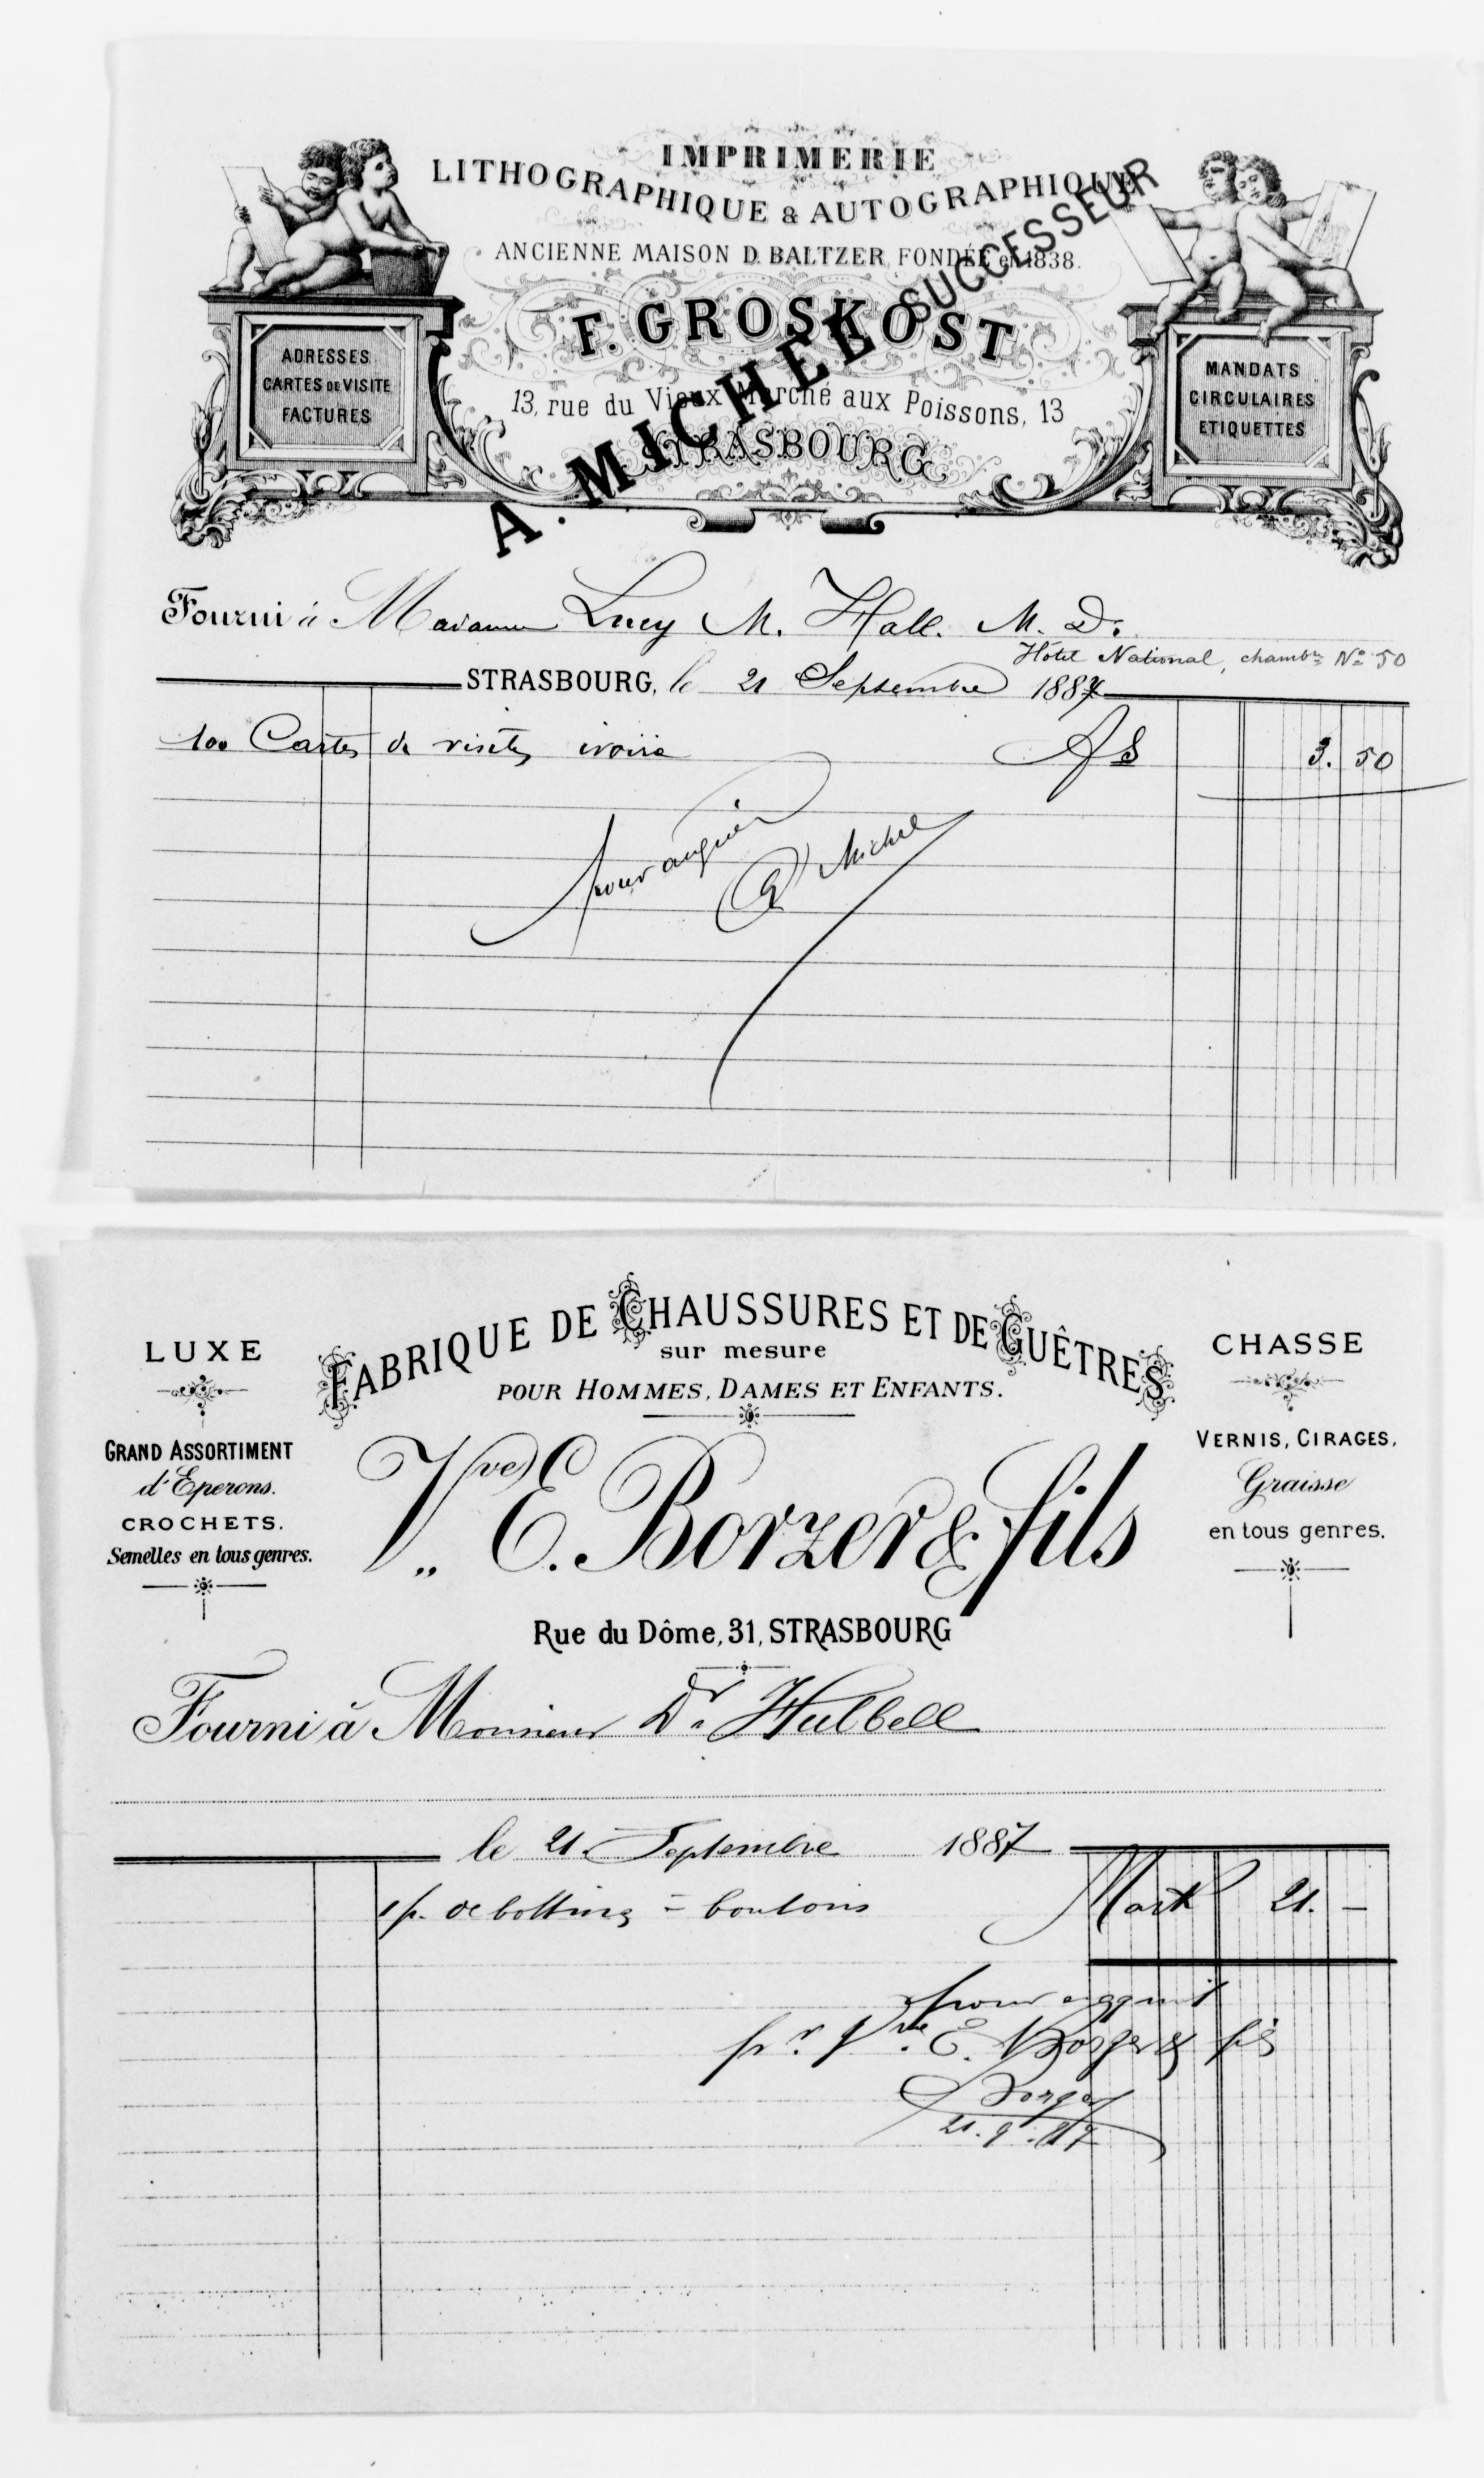 IMPRIMERIE
LITHOGRAPHIQUE & AUTOGRAPHIQUE
ANCIENNE MAISON D. BALTZER, FONDÉE en 1838.
F. GROSKOST
13, rue du Vieux Marché aux Poissons, 13
STRASBOURG
A. MICHEL SUCCESSEUR
ADRESSES
CARTES DE VISITE
FACTURES
MANDATS
CIRCULAIRES
ETIQUETTES
Fourni à Madame Lucy M. Hall. M. D.
Hôtel National, chambre No 50
STRASBOURG, le 21 Septembre 1887
100 Cartes de visites ivoire 3. 50
pour acquit
A Michel
FABRIQUE DE CHAUSSURES ET DE GUÊTRES
sur mesure
POUR HOMMES, DAMES ET ENFANTS.
LUXE
GRAND ASSORTIMENT
d'Eperons.
CROCHETS.
Semelles en tous genres.
CHASSE
VERNIS, CIRAGES,
Graisse
en tous genres.
Vve E. Borzer & fils
Rue du Dôme, 31, STRASBOURG
Fourni à Monsieur Dr Hulbell
le 21 Septembre 1887
1 p. de bottines à boutons Mark 21. –
pour acquit
pr. Vve E. Borzer & fils
Borzer
21. 9. 87